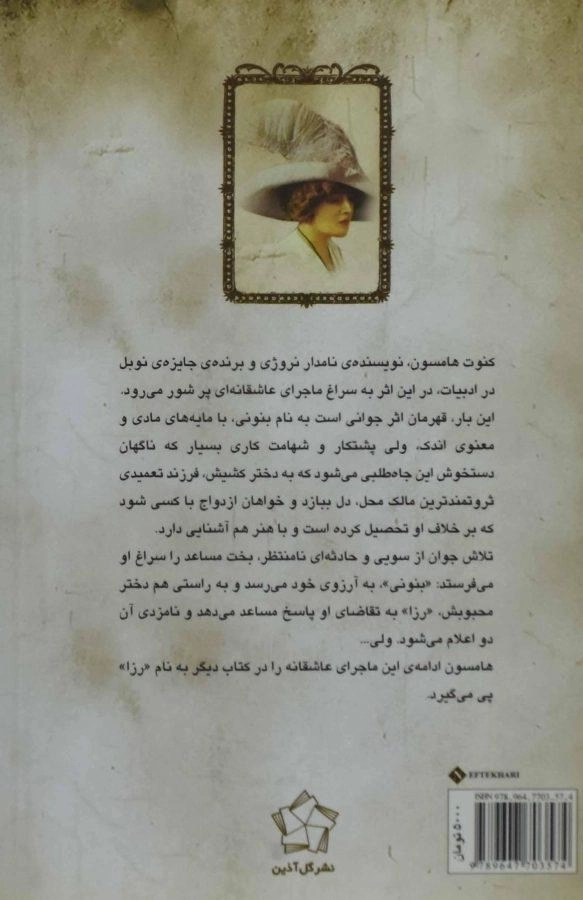 کنوت هامسون، نویسنده‌ی نامدار نروژی و برنده‌ی جایزه‌ی نوبل
در ادبیات، در این اثر به سراغ ماجرای عاشقانه‌ای پر شور می‌رود.
این بار، قهرمان اثر جوانی است به نام بنونی، با مایه‌های مادی و
معنوی اندک، ولی پشتکار و شهامت کاری بسیار که ناگهان
دستخوش این جاه‌طلبی می‌شود که به دختر کشیش، فرزند تعمیدی
ثروتمندترین مالک محل، دل ببازد و خواهان ازدواج با کسی شود
که بر خلاف او تحصیل کرده است و با هنر هم آشنایی دارد.
تلاش جوان از سویی و حادثه‌ای نامنتظر، بخت مساعد را سراغ او
می‌فرستد: «بنونی»، به آرزوی خود می‌رسد و به راستی هم دختر
محبوبش، «رزا» به تقاضای او پاسخ مساعد می‌دهد و نامزدی آن
دو اعلام می‌شود. ولی...
هامسون ادامه‌ی این ماجرای عاشقانه را در کتاب دیگر به نام «رزا»
پی می‌گیرد.
EFTEKHARI
ISBN 978_964_7703_57_4
9789647703574
۵۰۰۰ تومان
نشر گل آذین